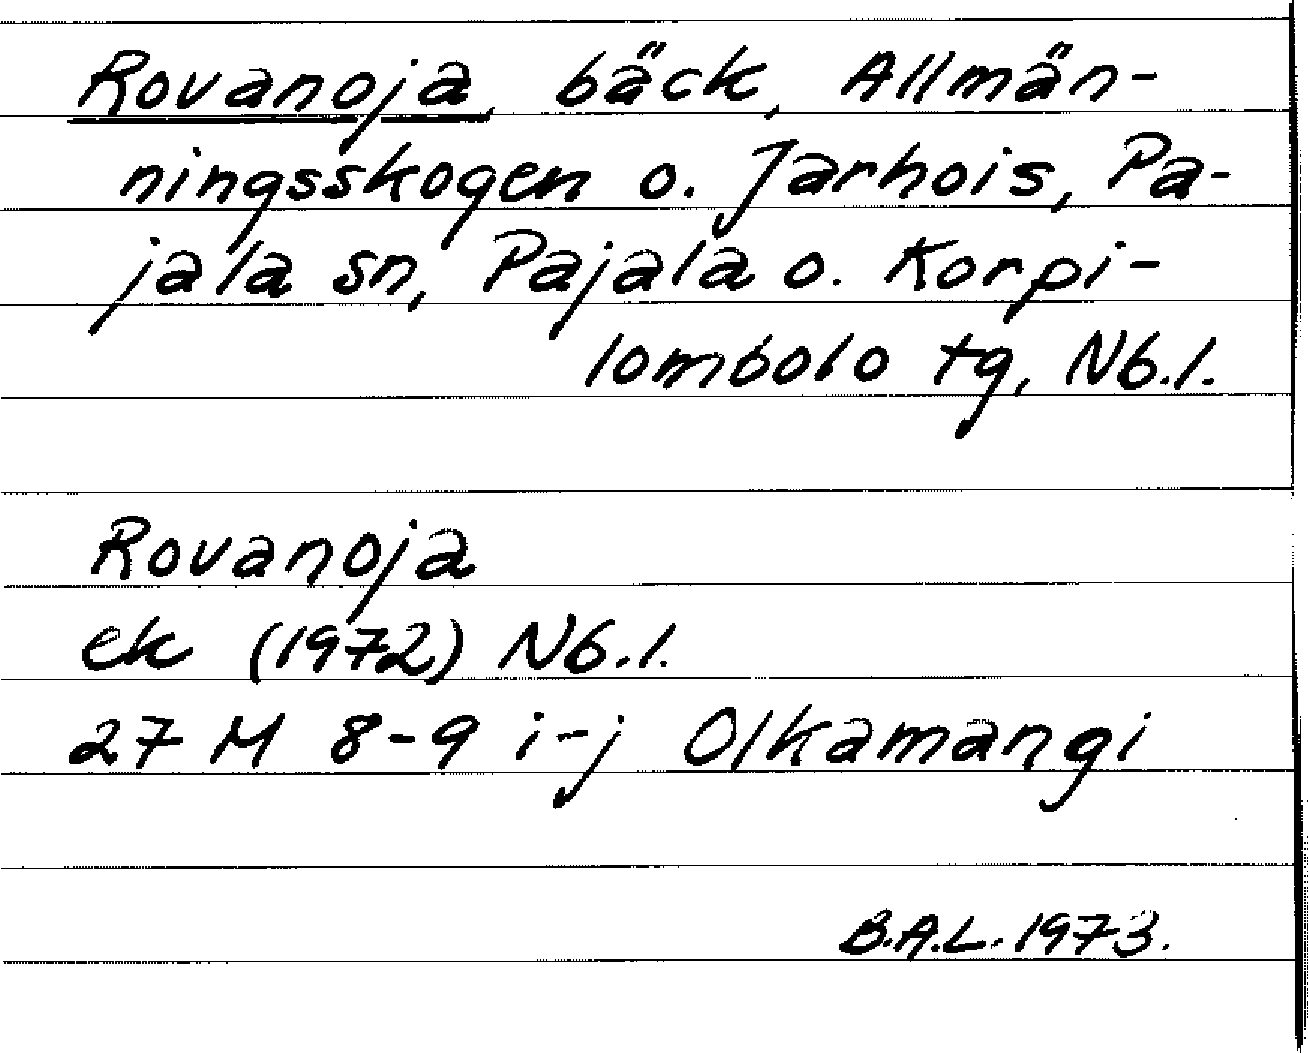 Rovanoja, bäck, Allmän-
ningsskogen o. Jarhois, Pa-
jala sn, Pajala o. Korpi-
lombolo tg, Nb.l.
Rovanoja
ek (1972) Nb.l.
27 M 8-9 i-j Olkamangi
B.A.L. 1973.